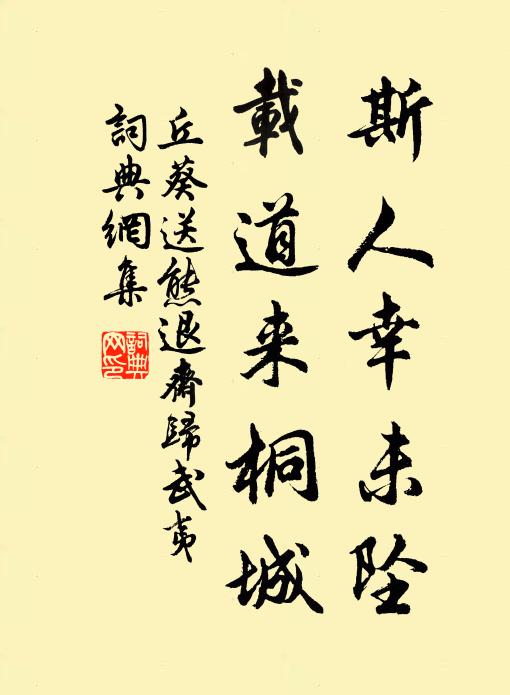 斯人幸未坠
載道来桐城
丘葵送熊退齋歸武夷
詞典網集
詞典网印